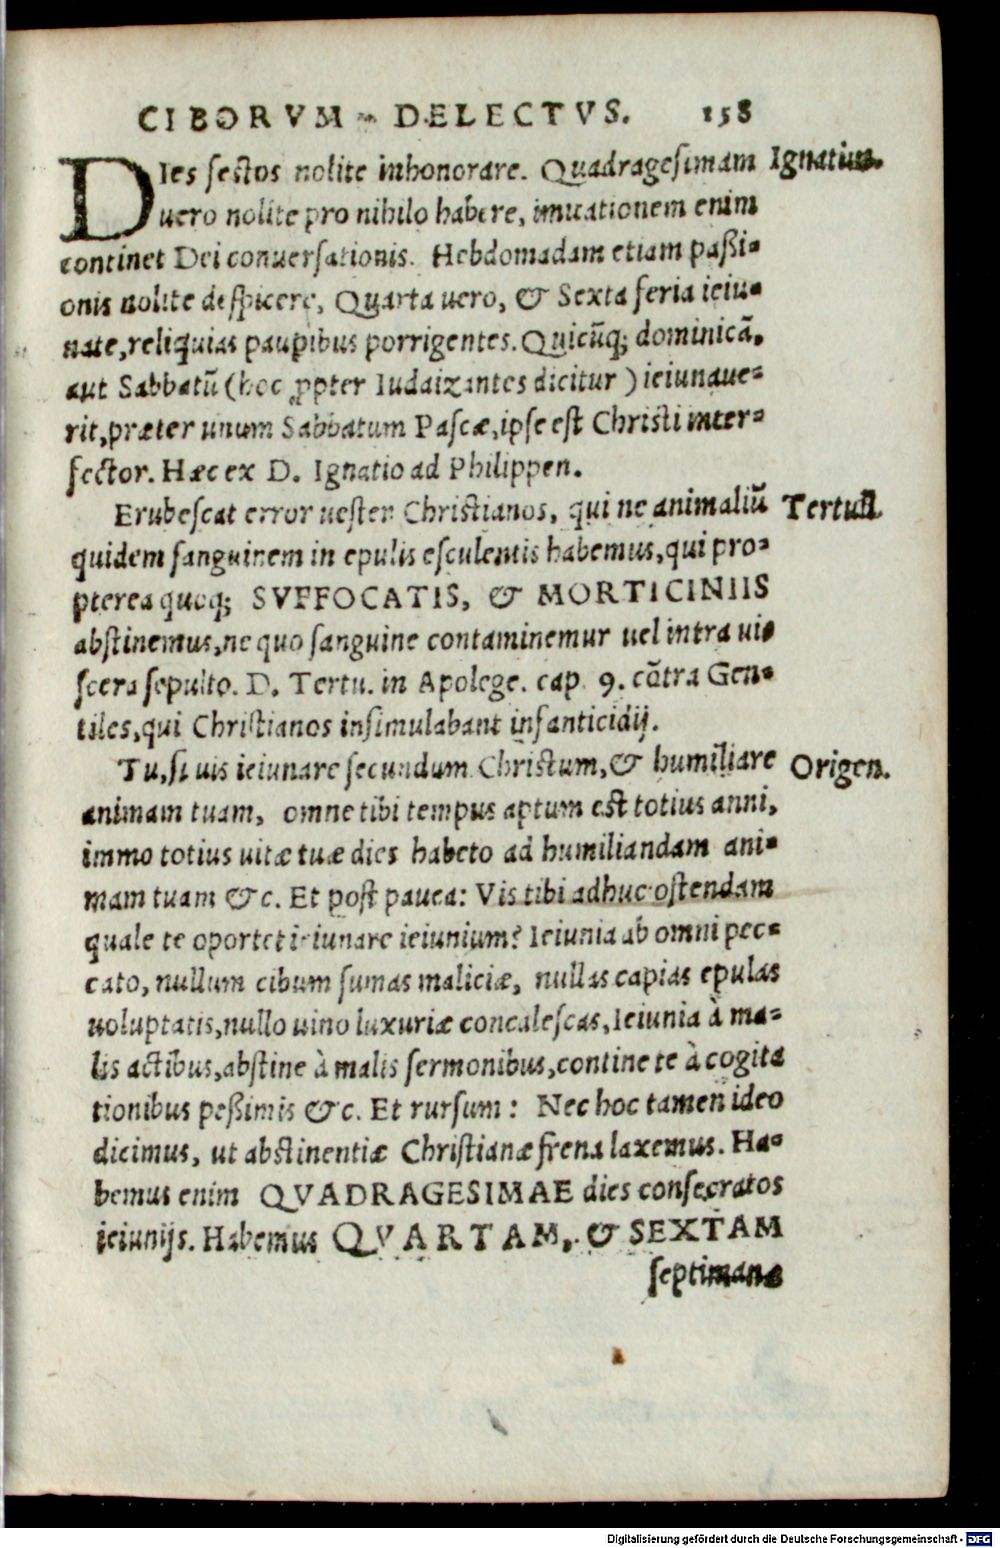 CIBORVM DELECTVS. 158
DIes festos nolite inhonorare. Quadragesimam Ignatius.
uero nolite pro nihilo habere, imitationem enim
continet Dei conuersationis. Hebdomadam etiam paßi-
onis nolite despicere, Quarta uero, & Sexta feria ieiu-
nate, reliquias paupibus porrigentes. Quicũq; dominicã,
aut Sabbatũ (hoc ꝓpter Iudaizantes dicitur) ieiunaue-
rit, præter unum Sabbatum Pascæ, ipse est Christi inter-
fector. Hæc ex D. Ignatio ad Philippen.
Erubescat error uester Christianos, qui ne animaliũ Tertull.
quidem sanguinem in epulis esculentis habemus, qui pro-
pterea quoq; SVFFOCATIS, & MORTICINIIS
abstinemus, ne quo sanguine contaminemur uel intra ui-
scera sepulto. D. Tertu. in Apologe. cap. 9. cõtra Gen-
tiles, qui Christianos insimulabant infanticidij.
Tu, si uis ieiunare secundum Christum, & humiliare Origen.
animam tuam, omne tibi tempus aptum est totius anni,
immo totius uitæ tuæ dies habeto ad humiliandam ani-
mam tuam &c. Et post pauca: Vis tibi adhuc ostendam
quale te oportet ieiunare ieiunium? Ieiunia ab omni pec-
cato, nullum cibum sumas maliciæ, nullas capias epulas
uoluptatis, nullo uino luxuriæ concalescas, Ieiunia à ma-
lis actibus, abstine à malis sermonibus, contine te à cogita
tionibus peßimis &c. Et rursum: Nec hoc tamen ideo
dicimus, ut abstinentiæ Christianæ frena laxemus. Ha-
bemus enim QVADRAGESIMAE dies consecratos
ieiunijs. Habemus QVARTAM, & SEXTAM
septimanæ
Digitalisierung gefördert durch die Deutsche Forschungsgemeinschaft - DFG